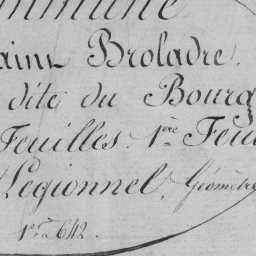 ommune
aint Broladre.
dite du Bourg
Feuilles. 1ère Feui
Legionnel, Géomètre